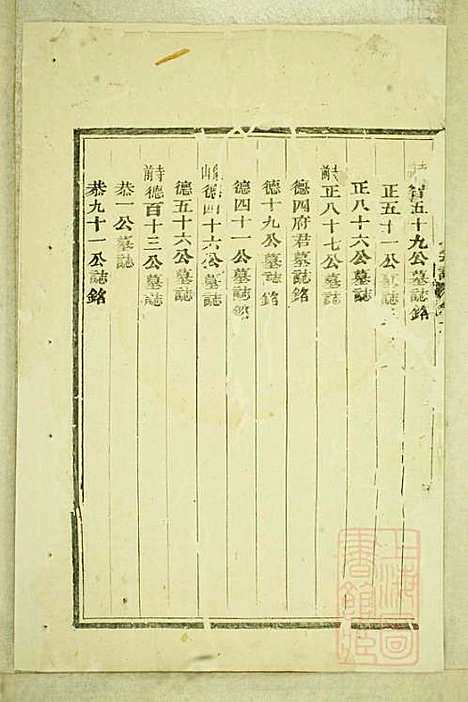 智五十九公墓誌銘
正五十一公墓誌
正八十六公墓誌
前正八十七公墓誌
德四府君墓誌銘
德十九公墓誌銘
德四十一公墓誌銘
山德四十六公墓誌
德五十六公墓誌
寺前德百十三公墓誌
恭一公墓誌
恭九十一公誌銘
上海圖書館藏